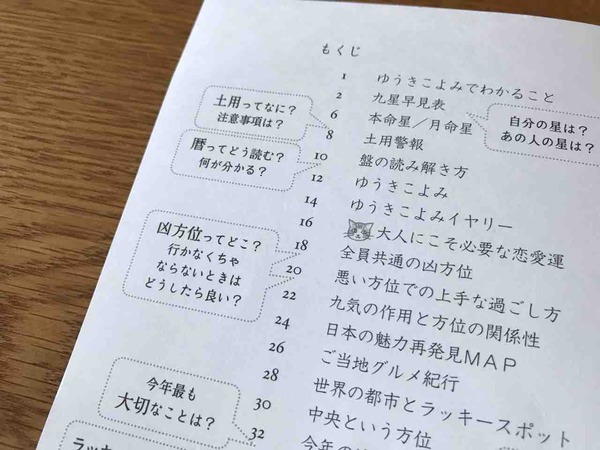 もくじ
1 ゆうきこよみでわかること
2 九星早見表
自分の星は?
あの人の星は?
6 本命星／月命星
土用ってなに?
注意事項は?
8 土用警報
10 盤の読み解き方
暦ってどう読む?
何が分かる?
12 ゆうきこよみ
14 ゆうきこよみイヤリー
16 大人にこそ必要な恋愛運
18 全員共通の凶方位
凶方位ってどこ?
行かなくちゃ
ならないときは
どうしたら良い?
20 悪い方位での上手な過ごし方
22 九気の作用と方位の関係性
24 日本の魅力再発見MAP
26 ご当地グルメ紀行
28 世界の都市とラッキースポット
30 中央という方位
今年最も
大切なことは?
32 今年の